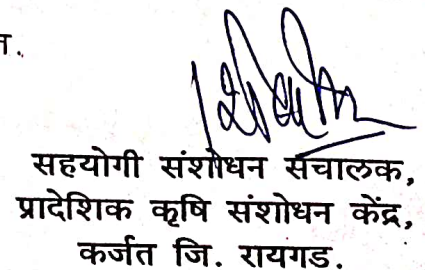 त.
सहयोगी संशोधन संचालक,
प्रादेशिक कृषि संशोधन केंद्र,
कर्जत जि. रायगड.